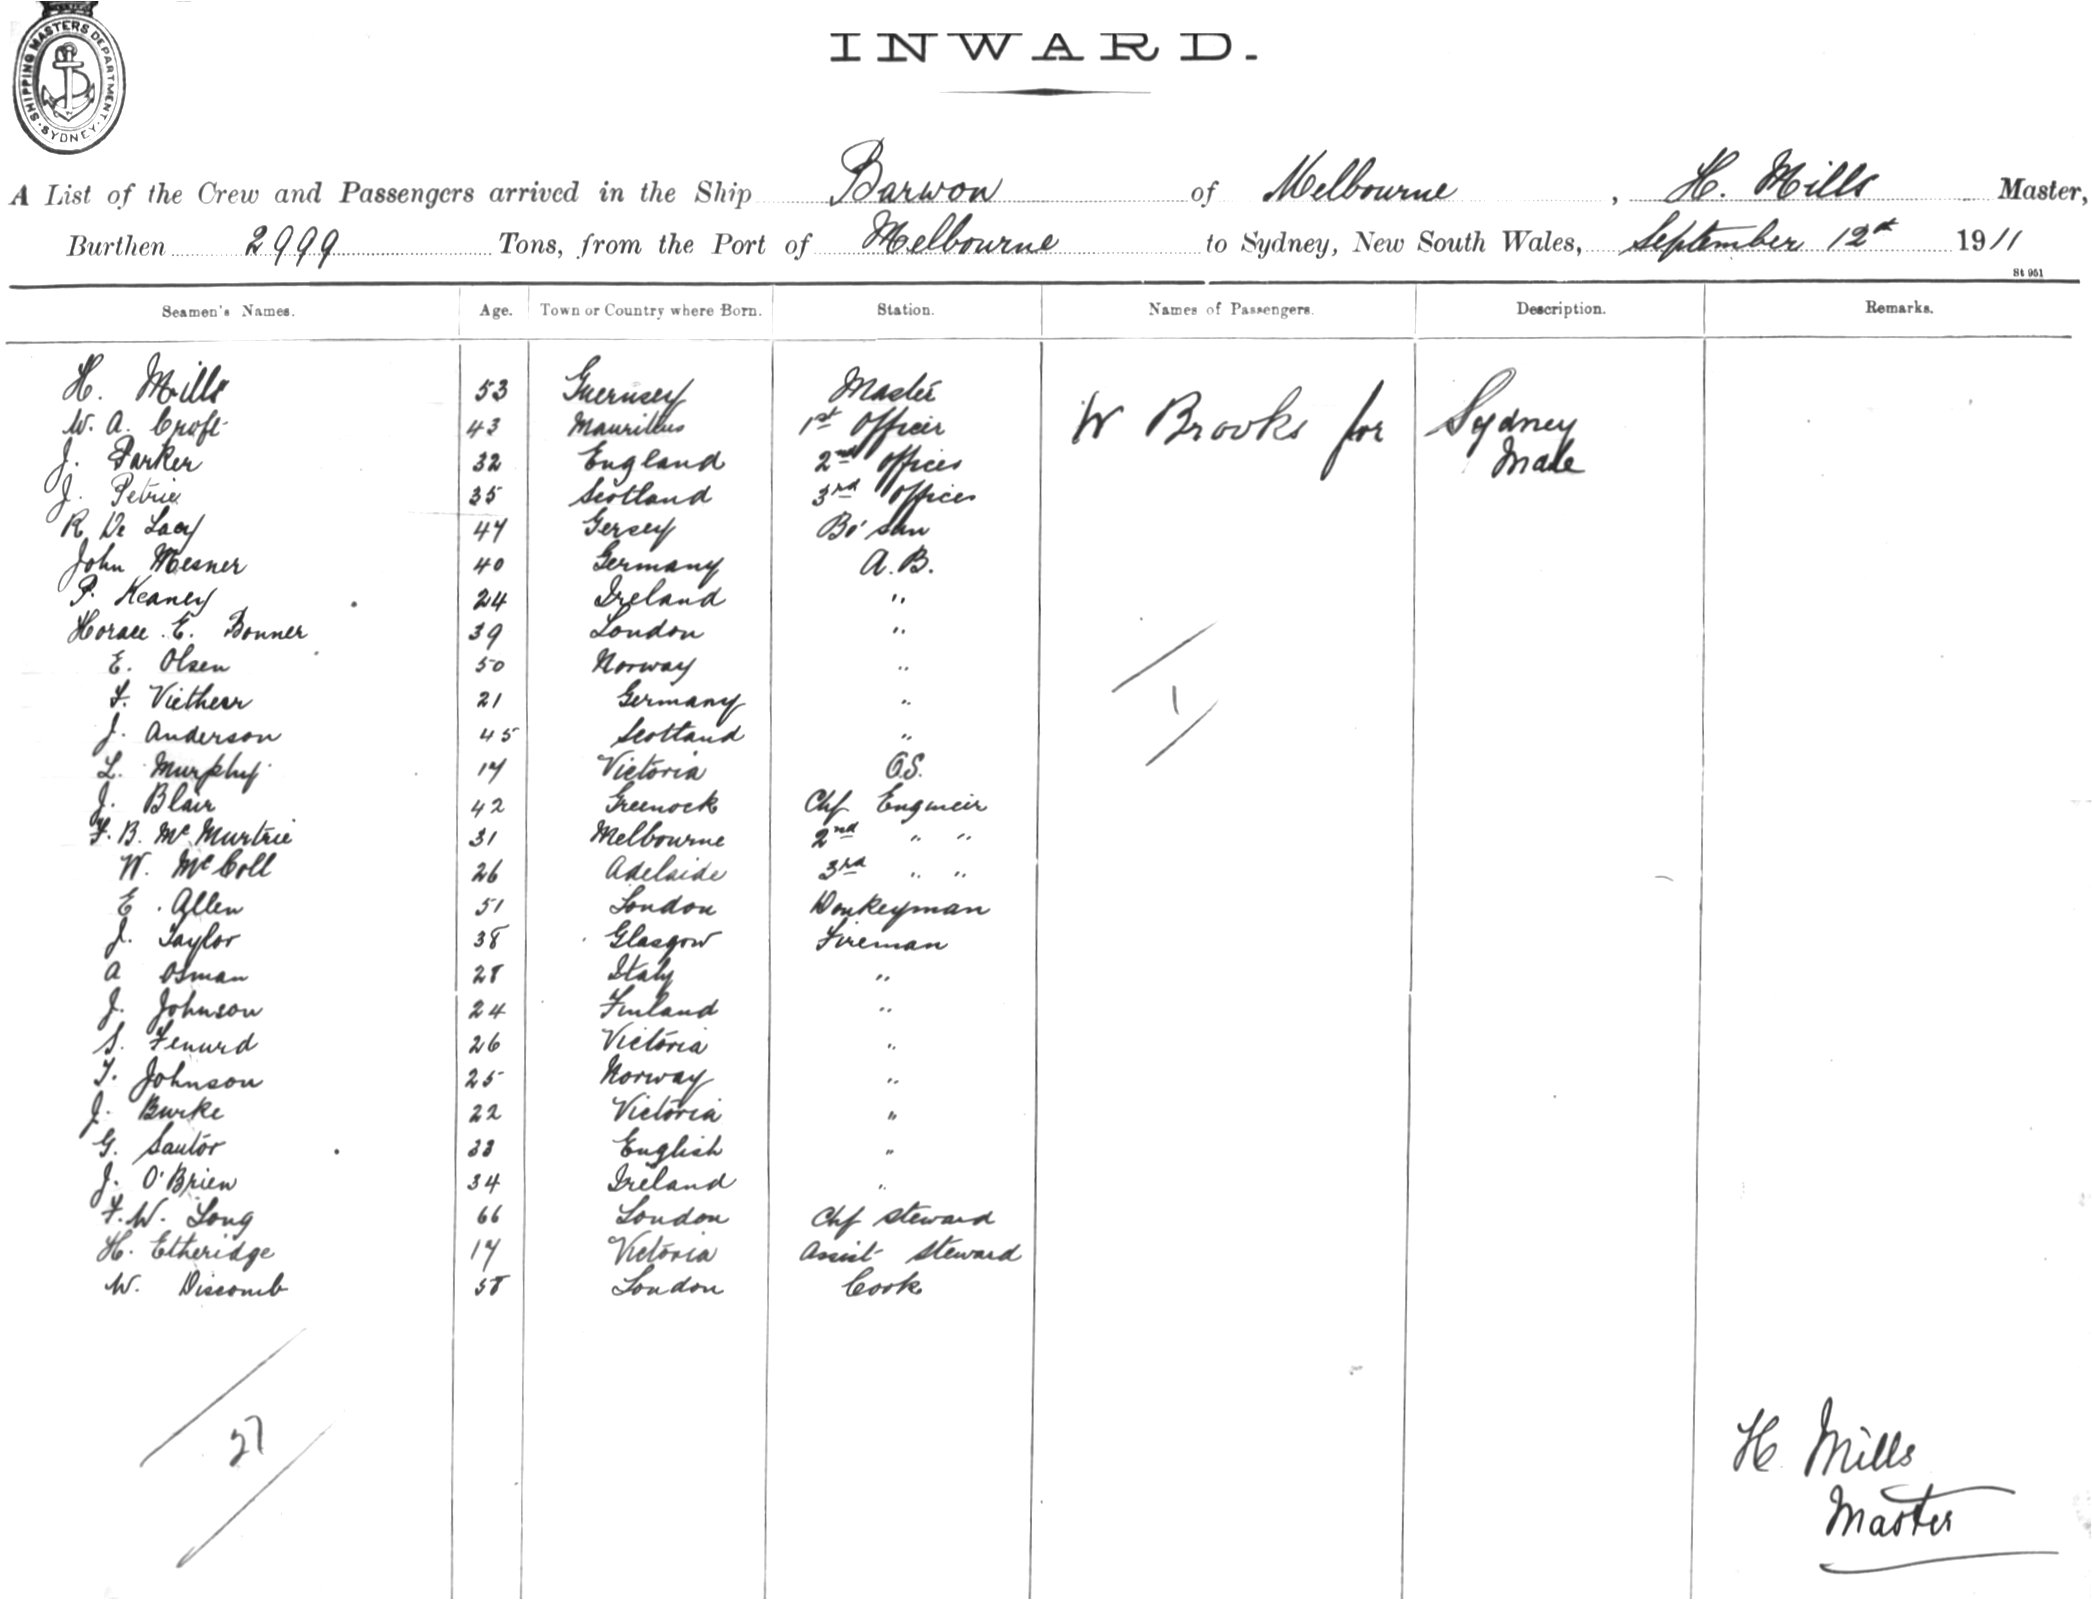 SHIPPING MASTERS DEPARTMENT. SYDNEY.
INWARD.
A List of the Crew and Passengers arrived in the Ship Barwon of Melbourne, H. Mills Master,
Burthen 2999 Tons, from the Port of Melbourne to Sydney, New South Wales, September 12th 1911
St 951
Seamen's Names. Age. Town or Country where Born. Station. Names of Passengers. Description. Remarks.
H. Mills 53 Guernsey Master W Brooks for Sydney
W. A. Croft 43 Mauritius 1st Officer
J. Parker 32 England 2nd Officer Male
J. Petrie 35 Scotland 3rd Officer
R De Lacy 47 Gersey Bo'sun
John Mesner 40 Germany A.B.
P. Keaney 24 Ireland "
Horace E. Bonner 39 London "
E. Olsen 50 Norway "
F. Vietheer 21 Germany "
1
J. Anderson 45 Scotland "
L. Murphy 17 Victoria O.S.
J. Blair 42 Greenock Chf Engineer
F. B. McMurtrie 31 Melbourne 2nd " "
W. McColl 26 Adelaide 3rd " "
E. Allen 51 London Donkeyman
J. Taylor 38 Glasgow Fireman
A Osman 28 Italy "
J. Johnson 24 Finland "
S. 26 Victoria "
T. Johnson 25 Norway "
J. Burke 22 Victoria "
G. Santor 33 English "
J. O'Brien 34 Ireland "
F. W. Long 66 London Chf Steward
H. Etheridge 17 Victoria Assist Steward
W. Discomb 58 London Cook
27
H Mills
Master